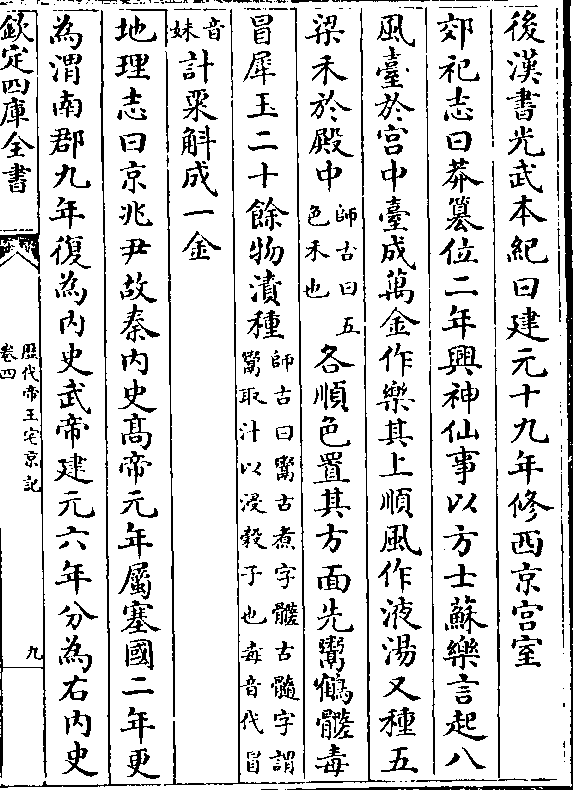 後漢書光武本紀曰建元十九年修西京宫室
郊祀志曰莽簒位二年興神仙事以方士蘇樂言起八
風臺於宫中臺成萬金作樂其上順風作液湯又種五
梁禾於殿中師古曰五色禾也各順色置其方面先鬻鶴髓毒
冒犀玉二十餘物漬種師古曰鬻古煮字髓古髓字謂鬻取汁以浸穀子也毒音代冒
音妹計粟斛成一金
地理志曰京兆尹故秦内史髙帝元年屬塞國二年更
為渭南郡九年復為内史武帝建元六年分為右内史
欽定四庫全書
歴代帝王宅京記
卷四
九